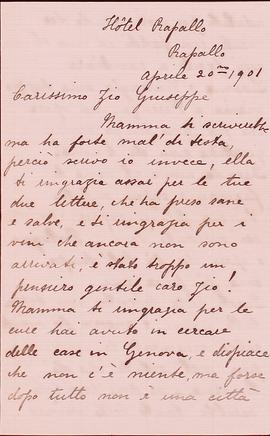 Hôtel Rapallo
Rapallo
Aprile 20mo 1901
Carissimo Zio Giuseppe
Mamma ti scriverebbe
ma ha forte mal' di testa,
perciò scrivo io invece, ella
ti ringrazia assai per le tue
due lettere, che ha preso sane
e salve, e ti ringrazia per i
vini che ancora non sono
arrivati, è stato troppo un
pensiero gentile caro Zio!
Mamma ti ringrazia per le
cure hai avuto in cercare
delle case in Genova, e dispiace
che non c'è niente, ma forse
dopo tutto non è una città